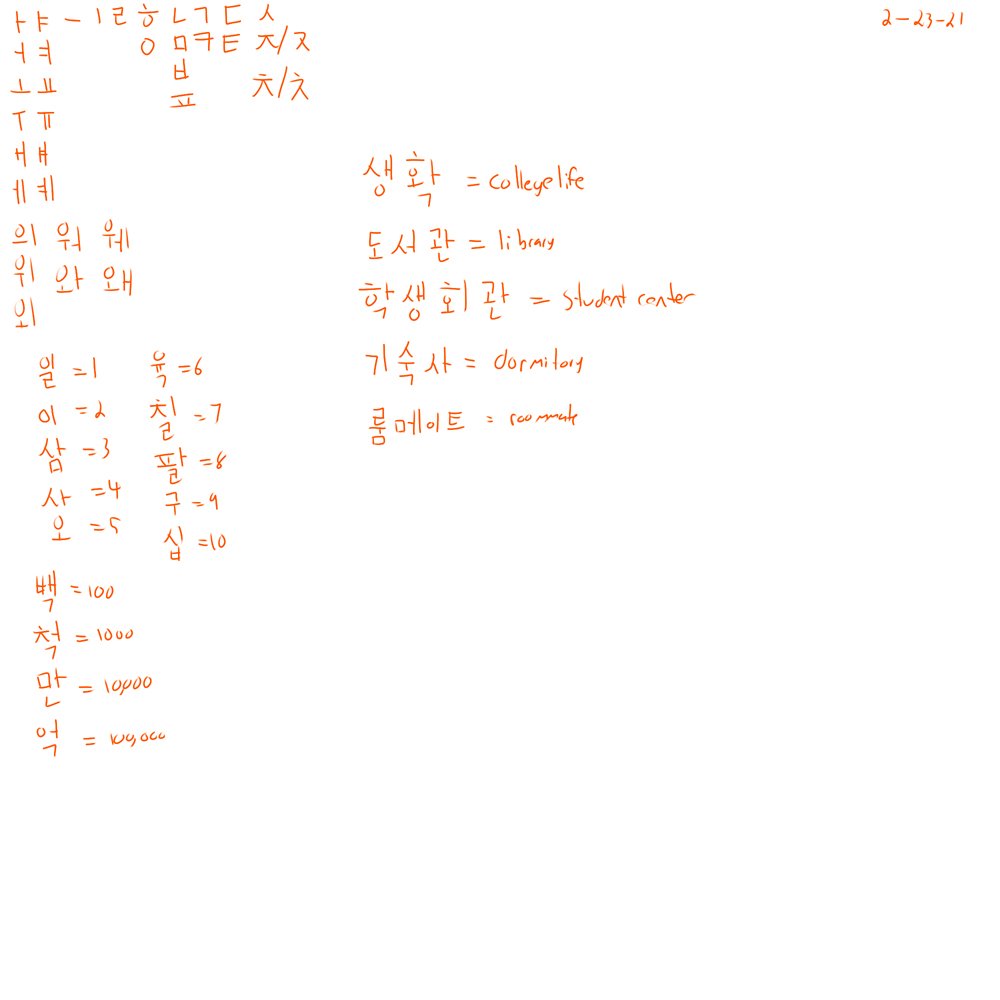 ㅏ ㅑ ㅡ ㅣ ㄹ ㅎ ㄴ ㄱ ㄷ ㅅ
2-23-21
ㅓ ㅕ ㅇ ㅁ ㅋ ㅌ ㅈ/ㅈ
ㅂ
ㅗ ㅛ ㅍ ㅊ/ㅊ
ㅜ ㅠ
ㅐ ㅒ
ㅔ ㅖ
의 워 웨
위 와 왜
외
생확 = college life
도서관 = library
학생회관 = student center
기숙사 = dormitory
룸메이트 = roommate
일 = 1 육 = 6
이 = 2 칠 = 7
삼 = 3 팔 = 8
사 = 4 구 = 9
오 = 5 십 = 10
백 = 100
척 = 1000
만 = 10,000
억 = 100,000